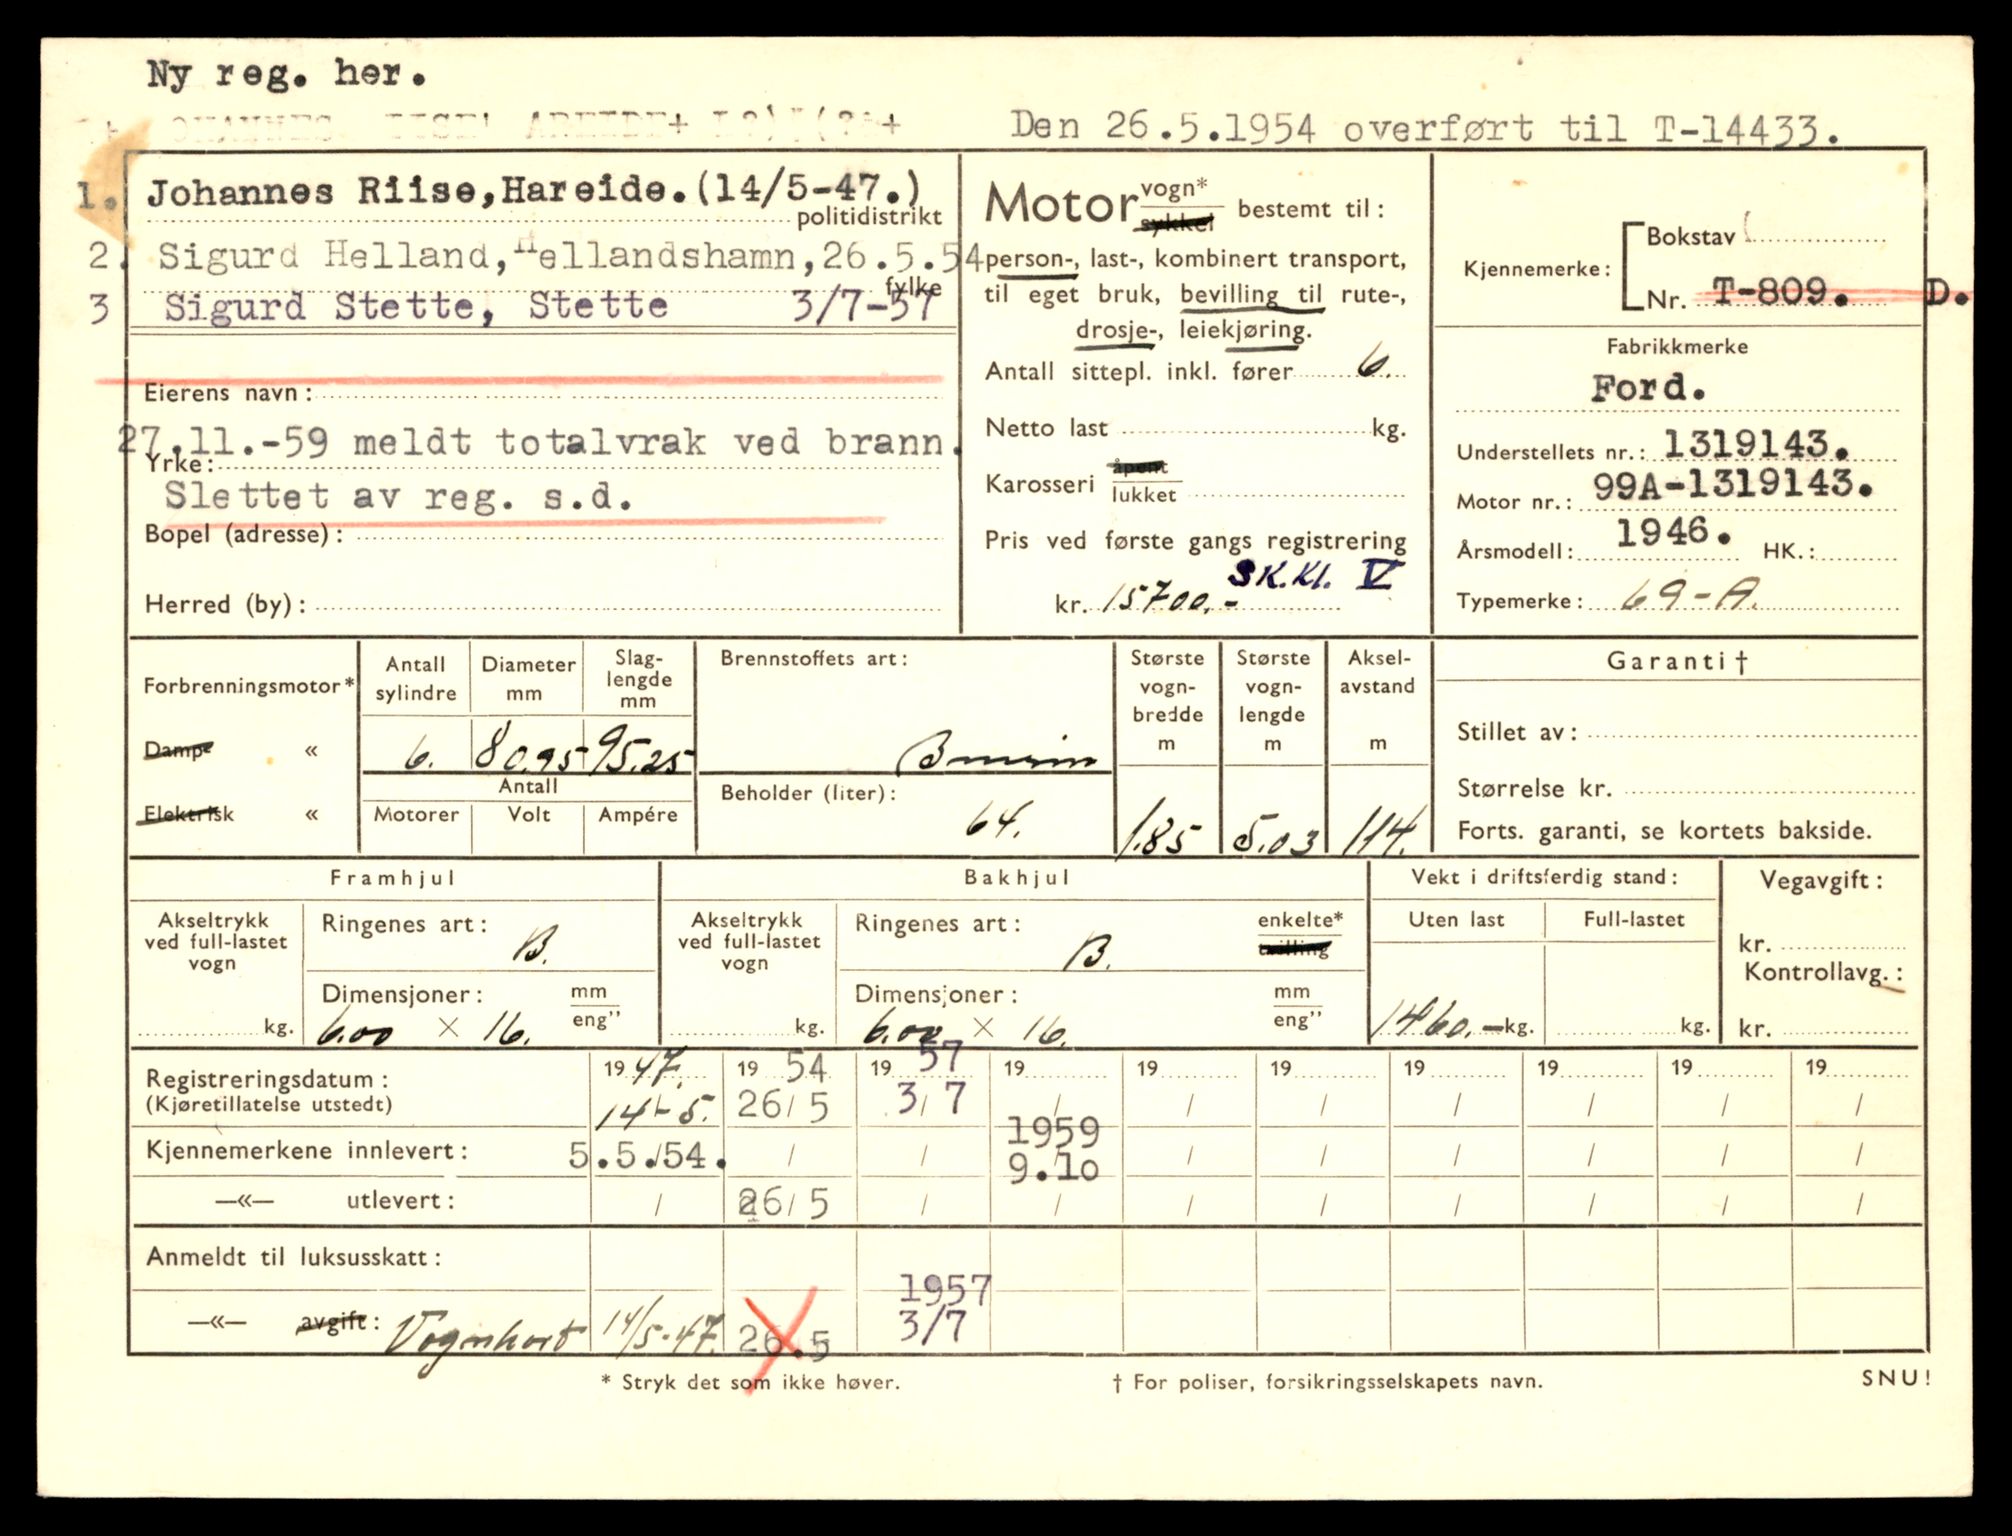 Ny reg. her.
Den 26.5.1954 overført til T-14433.
1. Johannes Riise,Hareide.(14/5-47.)
politidistrikt
2. Sigurd Helland,Hellandshamn,26.5.54
fylke
3 Sigurd Stette, Stette 3/7-57
Eierens navn:
27.11.-59 meldt totalvrak ved brann.
Yrke:
Slettet av reg. s.d.
Bopel (adresse):
Herred (by):
Motor vogn*
sykkel bestemt til:
person-, last-, kombinert transport,
til eget bruk, bevilling til rute-,
drosje-, leiekjøring.
Antall sittepl. inkl. fører 6.
Netto last kg.
Karosseri åpent
lukket
Pris ved første gangs registrering
SK.Kl. V
kr. 15700.-
Kjennemerke: Bokstav
Nr. T-809. D.
Fabrikkmerke
Ford.
Understellets nr.: 1319143.
Motor nr.: 99A-1319143.
Årsmodell: 1946. HK.:
Typemerke: 69-A.
Forbrenningsmotor*
Damp- «
Elektrisk «
Antall sylindre
6.
Diameter mm
80.95
Slag-
lengde
mm
95.25
Antall
Motorer Volt Ampére
Brennstoffets art:
Bensin
Beholder (liter):
64.
Største
vogn-
bredde
m
1.85
Største
vogn-
lengde
m
5.03
Aksel-
avstand
m
114.
Garanti†
Stillet av:
Størrelse kr.
Forts. garanti, se kortets bakside.
Framhjul
Akseltrykk
ved full-lastet
vogn
kg.
Ringenes art: B.
Dimensjoner: mm
eng"
6.00 × 16.
Bakhjul
Akseltrykk
ved full-lastet
vogn
kg.
Ringenes art: B. enkelte*
tvilling
Dimensjoner: mm
eng"
6.00 × 16.
Vekt i driftsferdig stand:
Uten last Full-lastet
1460.- kg. kg.
Vegavgift:
kr.
Kontrollavg.:
kr.
Registreringsdatum: 1947. 1954 1957 19 19 19 19 19 19 19
(Kjøretillatelse utstedt) 14-5. 26/5 3/7 / / / / / / /
1959
Kjennemerkene innlevert: 5.5.54. / / 9.10 / / / / / /
—«— utlevert: / 26/5 / / / / / / / /
Anmeldt til luksusskatt:
—«— avgift: Vognkort 14/5-47. 26.5 1957
3/7
* Stryk det som ikke høver.
† For poliser, forsikringsselskapets navn.
SNU!